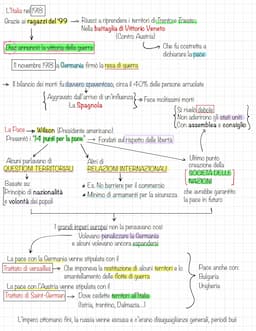 L'Italia nel 1918
Grazie ai ragazzi del '99 → Riuscì a riprendere i territori di Trentino Trieste
Nella battaglia di Vittorio Veneto
(Contro Austria)
Diaz annunciò la vittoria della guerra
Che fu costretta a dichiarare la pace
11 novembre 1918 a Germania firmò la resa di guerra
→ Il bilancio dei morti fu davvero spaventoso, circa il 40% delle persone arruolate
Aggravato dall'arrivo di un'influenza
La Spagnola
→ Fece moltissimi morti
Si rivelò debole
Non aderirono gli stati uniti
Con assemblea e consiglio
La Pace → Wilson (Presidente americano)
Presentò i "14 punti per la pace" → Fondati sul rispetto delle libertà
Alcuni parlavano di
QUESTIONI TERRITORIALI
Basate su:
Principio di nazionalità
e volontà dei popoli
Altri di
RELAZIONI INTERNAZIONALI
• Es. No barriere per il commercio
• Minimo di armamenti per la sicurezza
Ultimo punto
creazione della
SOCIETÀ DELLE
NAZIONI
che avrebbe garantito
la pace in futuro
I grandi imperi europei non la pensavano così
Volevano penalizzare la Germania
e alcuni volevano espandersi
La pace con la Germania venne stipulata con il
Trattato di versailles → Che imponeva la restituzione di alcuni territori e lo
smantellamento della flotta di guerra
La pace con l'Austria venne stipulata con il
Trattato di Saint-Germain → Dove cedette territori all'Italia
(Istria, trentino, Dalmazia...)
Pace anche con:
Bulgaria
Ungheria
L'impero ottomano finì, la russia venne scossa e c'erano disuguaglianze generali, periodi bui